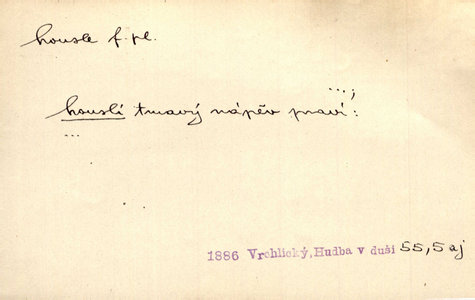 housle f. pl.
...;
houslí tmavý nápěv praví:
...
1886 Vrchlický, Hudba v duši 55,5 aj